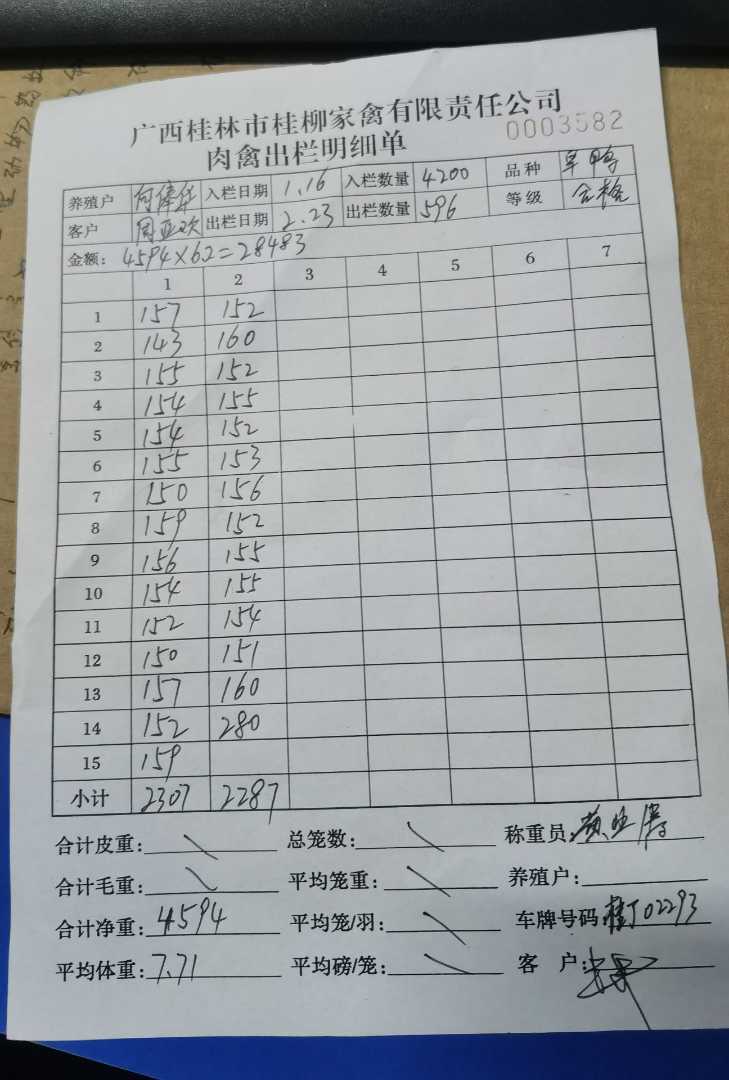 广西桂林市桂柳家禽有限责任公司
0003582
肉禽出栏明细单
养殖户 入栏日期 1.16 入栏数量 4200 品种 旱鸭
客户 周亚欢 出栏日期 2.23 出栏数量 596 等级 合格
金额: 4594×6.2=28483
1 2 3 4 5 6 7
1 157 152
2 143 160
3 155 152
4 154 155
5 154 152
6 155 153
7 150 156
8 159 152
9 156 155
10 154 155
11 152 154
12 150 151
13 157 160
14 152 280
15 159
小计 2307 2287
合计皮重: 总笼数: 称重员:
合计毛重: 平均笼重: 养殖户:
合计净重: 4594 平均笼/羽: 车牌号码: 桂J02293
平均体重: 7.71 平均磅/笼: 客 户: